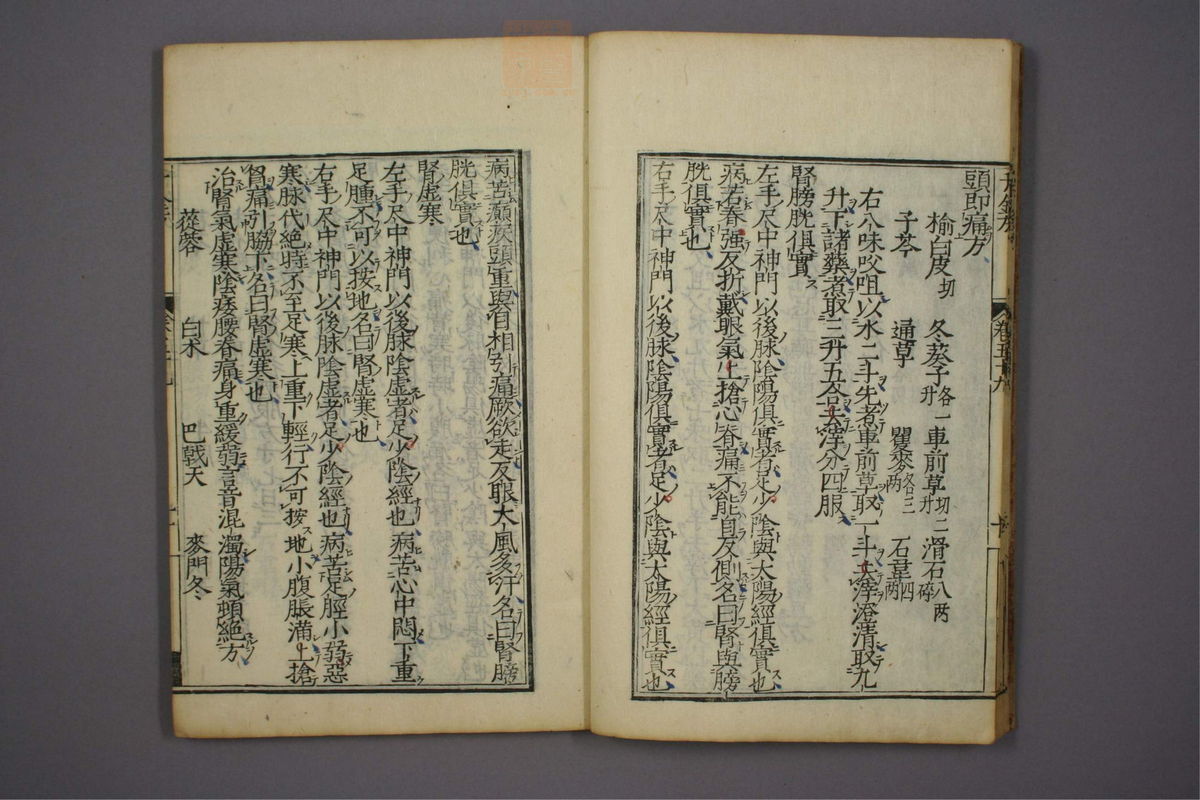 頭即痛方
榆白皮切 冬葵子各一升 車前草切二升 滑石八两碎
子芩 通草 瞿麥各三两 石韋四两
右八味㕮咀以水二斗先煮車前草取一斗去滓澄清取九
升下諸藥煮取三升五合去滓分四服
腎膀胱俱實
左手尺中神門以後脉陰陽俱實者足少陰與太陽經俱實也
病苦脊強反折戴眼氣上搶心脊痛不能自反側名曰腎與膀
胱俱實也
右手尺中神門以後脉陰陽俱實者足少陰與太陽經俱實也
病苦癲疾頭重與目相引痛厥欲走反眼大風多汗名曰腎膀
胱俱實也
腎虛寒
左手尺中神門以後脉陰虛者足少陰經也病苦心中悶下重
足腫不可以按地名曰腎虛寒也
右手尺中神門以後脉陰虛者足少陰經也病苦足脛小弱惡
寒脉代絕時不至足寒上重下輕行不可按地小腹脹滿上搶
胷痛引脇下名曰腎虛寒也
治腎氣虛寒陰痿腰脊痛身重緩弱言音混濁陽氣頓絕方
蓯蓉 白朮 巴戟天 麥門冬